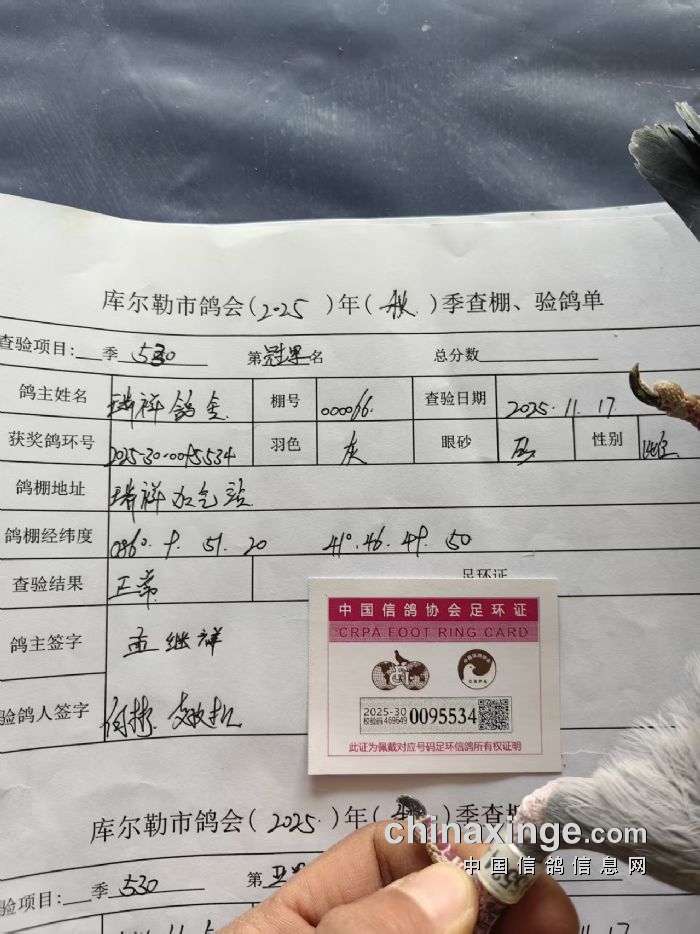 库尔勒市鸽会(2025)年(秋)季查棚、验鸽单
查验项目:　季 530　第冠军名　总分数
鸽主姓名 瑞祥鸽舍 棚号 000066. 查验日期 2025.11.17
获奖鸽环号 2025-30-0095534 羽色 灰 眼砂 砂 性别 雄
鸽棚地址 瑞祥加气站
鸽棚经纬度 086°. 9. 51. 20 41°. 46. 49. 50
查验结果 正常 足环证
鸽主签字 孟继祥
验鸽人签字 何彬
中国信鸽协会足环证
CRPA FOOT RING CARD
CRPA
2025-30
校验码469649
0095534
此证为佩戴对应号码足环信鸽所有权证明
库尔勒市鸽会(2025.)年(秋)季查棚
验项目: 季 530 第亚军
chinaxinge.com
中国信鸽信息网